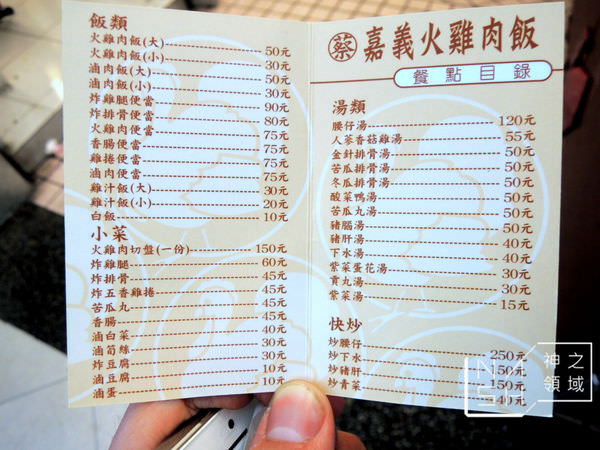 飯類
火雞肉飯(大) 50元
火雞肉飯(小) 30元
滷肉飯(大) 50元
滷肉飯(小) 30元
炸雞腿便當 90元
炸排骨便當 80元
火雞肉便當 75元
香腸便當 75元
雞捲便當 75元
滷肉便當 75元
雞汁飯(大) 30元
雞汁飯(小) 20元
白飯 10元
小菜
火雞肉切盤(一份) 150元
炸雞腿 60元
炸排骨 45元
炸五香雞捲 45元
苦瓜丸 45元
香腸 45元
滷白菜 40元
滷筍絲 30元
炸豆腐 30元
滷豆腐 10元
滷蛋 10元
蔡 嘉義火雞肉飯
餐點目錄
湯類
腰仔湯 120元
人蔘香菇雞湯 55元
金針排骨湯 50元
苦瓜排骨湯 50元
冬瓜排骨湯 50元
酸菜鴨湯 50元
苦瓜丸湯 50元
豬腦湯 50元
豬肝湯 40元
下水湯 40元
紫菜蛋花湯 30元
貢丸湯 30元
紫菜湯 15元
快炒
炒腰仔 250元
炒下水 150元
炒豬肝 150元
炒青菜 40元
神之領域